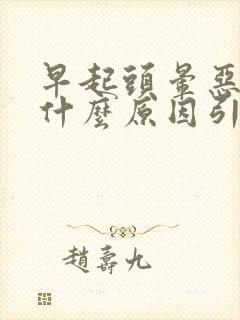 早起頭暈惡
什麼原因引
趙壽九